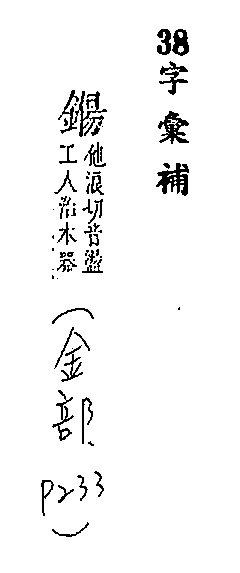 38字彙補
鐋
他浪切音盪
工人治木器
(金部 P233)